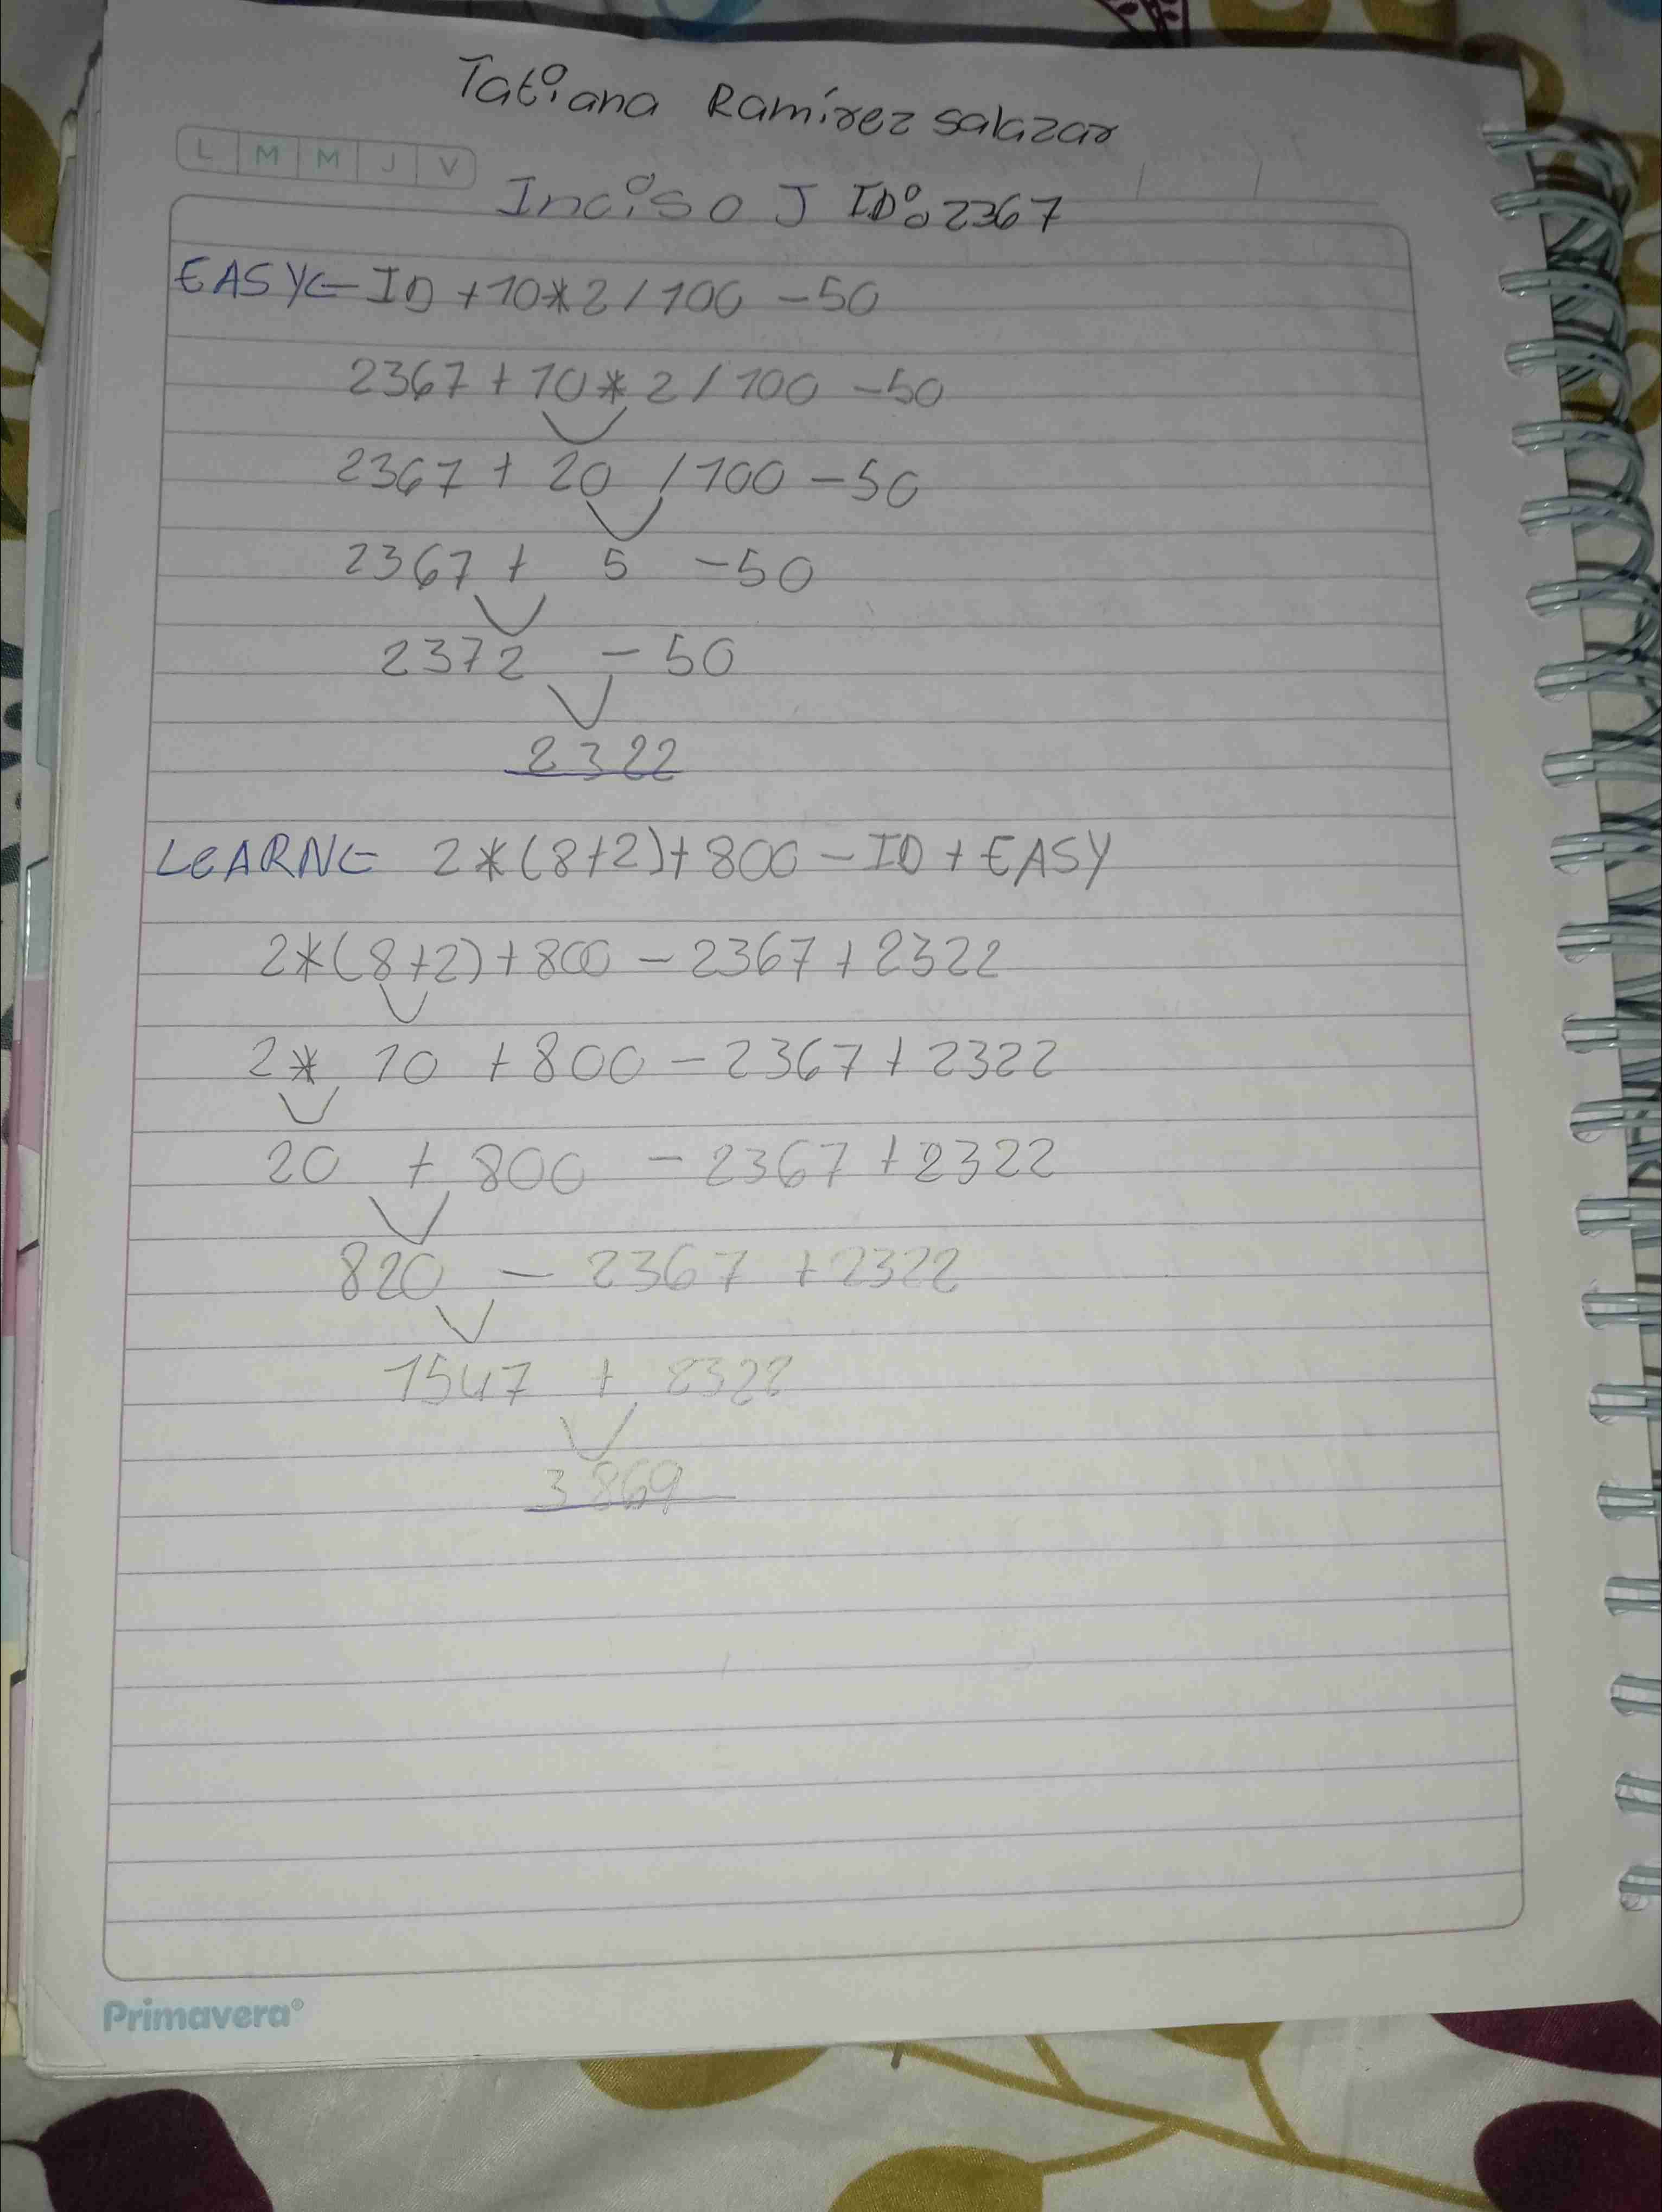 Tatiana Ramírez Salazar
L M M J V
Inciso J ID: 2367
EASY← ID + 10*2/100 - 50
2367 + 10 * 2 / 100 - 50
2367 + 20 / 100 - 50
2367 + 5 - 50
2372 - 50
2322
LEARN← 2*(8+2)+800 - ID + EASY
2*(8+2)+800 - 2367 + 2322
2* 10 + 800 - 2367 + 2322
20 + 800 - 2367 + 2322
820 - 2367 + 2322
1547 + 2322
3869
Primavera®